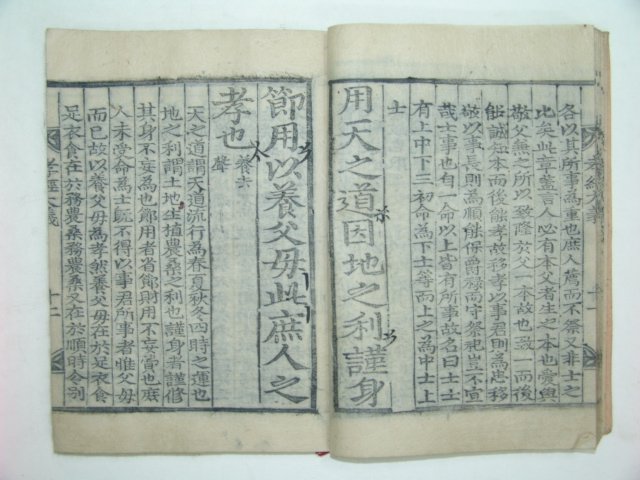 各以其所事為重也庶人薦而不祭又非士之
比矣此章盖言人必有本父者生之本也愛與
敬父無之所以致隆於父一本故也致一而後
能誠知本而後能孝故移孝以事君則為忠移
敬以事長則為順能保爵祿而守祭祀豈不宜
哉士事也自一命以上皆有所事故名曰士士
有上中下三初命為下士等而上之為中士上
士
用天之道因地之利謹身
節用以養父母此庶人之
孝也 養六聲
天之道謂天道流行為春夏秋冬四時之運也
地之利謂土地生植農桑之利也謹身者謹修
其身不妄為也節用者省節財用不妄費也庶
人未受命為士既不得以事君所事者惟父母
而已故以養父母為孝然養父母在於足衣食
足衣食在於務農桑務農桑又在於順時令別
孝經大義
十二